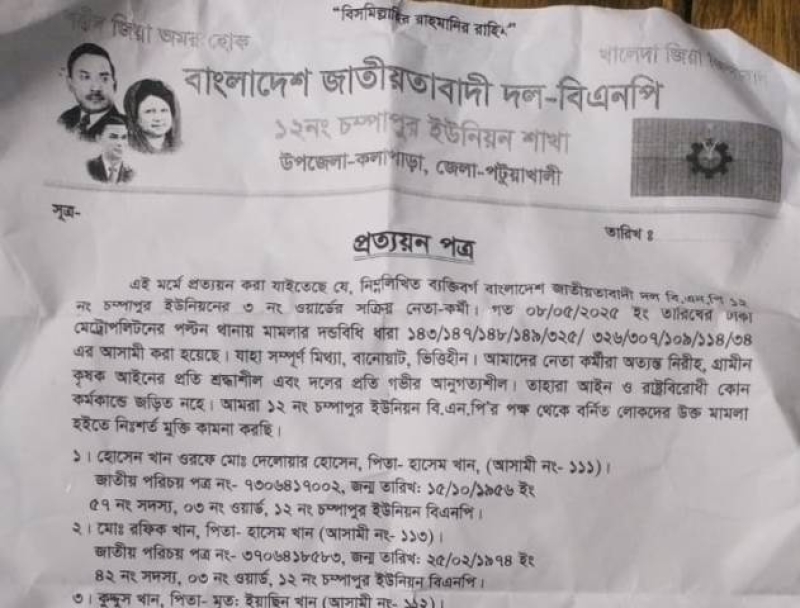 "বিসমিল্লাহির রাহমানির রাহিম"
শহীদ জিয়া অমর হোক
খালেদা জিয়া
বাংলাদেশ জাতীয়তাবাদী দল-বিএনপি
১২নং চম্পাপুর ইউনিয়ন শাখা
উপজেলা-কলাপাড়া, জেলা-পটুয়াখালী
সূত্র-
তারিখ ঃ
প্রত্যয়ন পত্র
এই মর্মে প্রত্যয়ন করা যাইতেছে যে, নিম্নলিখিত ব্যক্তিবর্গ বাংলাদেশ জাতীয়তাবাদী দল বি.এন.পি ১২
নং চম্পাপুর ইউনিয়নের ৩ নং ওয়ার্ডের সক্রিয় নেতা-কর্মী। গত ০৮/০৫/২০২৫ ইং তারিখের ঢাকা
মেট্রোপলিটনের পল্টন থানায় মামলার দন্ডবিধি ধারা ১৪৩/১৪৭/১৪৮/১৪৯/৩২৫/ ৩২৬/৩০৭/১০৯/১১৪/৩৪
এর আসামী করা হয়েছে। যাহা সম্পূর্ণ মিথ্যা, বানোয়াট, ভিত্তিহীন। আমাদের নেতা কর্মীরা অত্যন্ত নিরীহ, গ্রামীন
কৃষক আইনের প্রতি শ্রদ্ধাশীল এবং দলের প্রতি গভীর আনুগত্যশীল। তাহারা আইন ও রাষ্ট্রবিরোধী কোন
কর্মকান্ডে জড়িত নহে। আমরা ১২ নং চম্পাপুর ইউনিয়ন বি.এন.পি'র পক্ষ থেকে বর্নিত লোকদের উক্ত মামলা
হইতে নিঃশর্ত মুক্তি কামনা করছি।
১। হোসেন খান ওরফে মোঃ দেলোয়ার হোসেন, পিতা- হাসেম খান, (আসামী নং- ১১১)।
জাতীয় পরিচয় পত্র নং- ৭৩০৬৪১৭০০২, জন্ম তারিখ: ১৫/১০/১৯৫৬ ইং
৫৭ নং সদস্য, ০৩ নং ওয়ার্ড, ১২ নং চম্পাপুর ইউনিয়ন বিএনপি।
২। মোঃ রফিক খান, পিতা- হাসেম খান (আসামী নং- ১১৩)।
জাতীয় পরিচয় পত্র নং- ৩৭০৬৪১৮৫৮৩, জন্ম তারিখ: ২৫/০২/১৯৭৪ ইং
৪২ নং সদস্য, ০৩ নং ওয়ার্ড, ১২ নং চম্পাপুর ইউনিয়ন বিএনপি।
৩। কুদ্দুস খান, পিতা- মৃত: ইয়াছিন খান (আসামী নং- ১১২)।